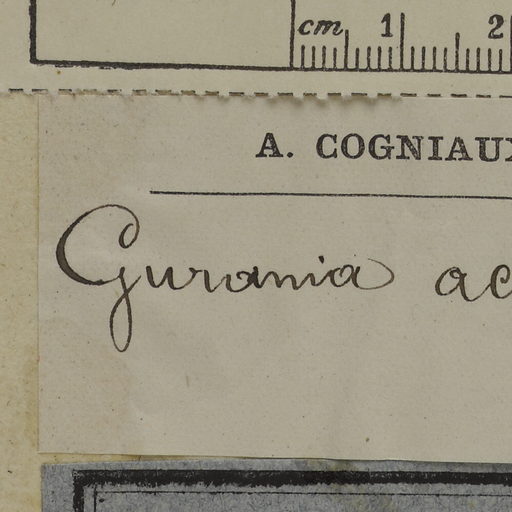 cm 1 2
A. COGNIAUX
Gurania ac